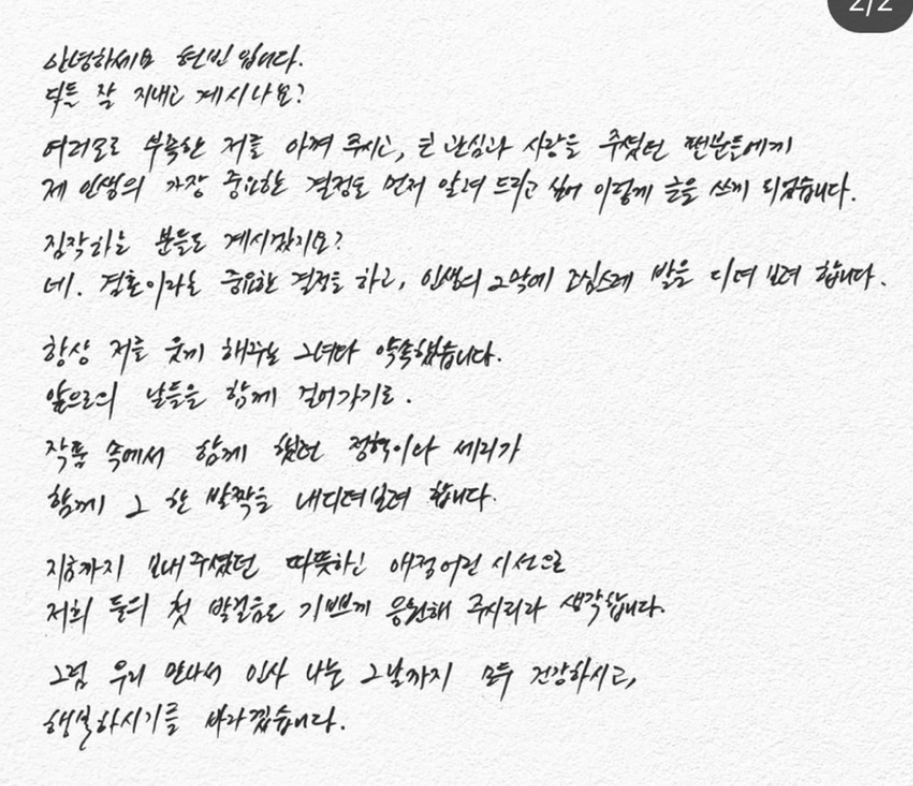 2/2
안녕하세요 현빈 입니다.
다들 잘 지내고 계시나요?
여러모로 부족한 저를 아껴 주시고, 큰 관심과 사랑을 주셨던 팬분들에게
제 인생의 가장 중요한 결정을 먼저 알려 드리고 싶어 이렇게 글을 쓰게 되었습니다.
짐작하는 분들도 계시겠지요?
네. 결혼이라는 중요한 결정을 하고, 인생의 2막에 조심스레 발을 디뎌 보려 합니다.
항상 저를 웃게 해주는 그녀와 약속했습니다.
앞으로의 날들을 함께 걸어가기로.
작품 속에서 함께 했던 정혁이와 세리가
함께 그 한 발짝을 내디뎌보려 합니다.
지금까지 보내 주셨던 따뜻하신 애정어린 시선으로
저희 둘의 첫 발걸음도 기쁘게 응원해 주시리라 생각합니다.
그럼 우리 만나서 인사 나눌 그날까지 모두 건강하시고,
행복하시기를 바라겠습니다.